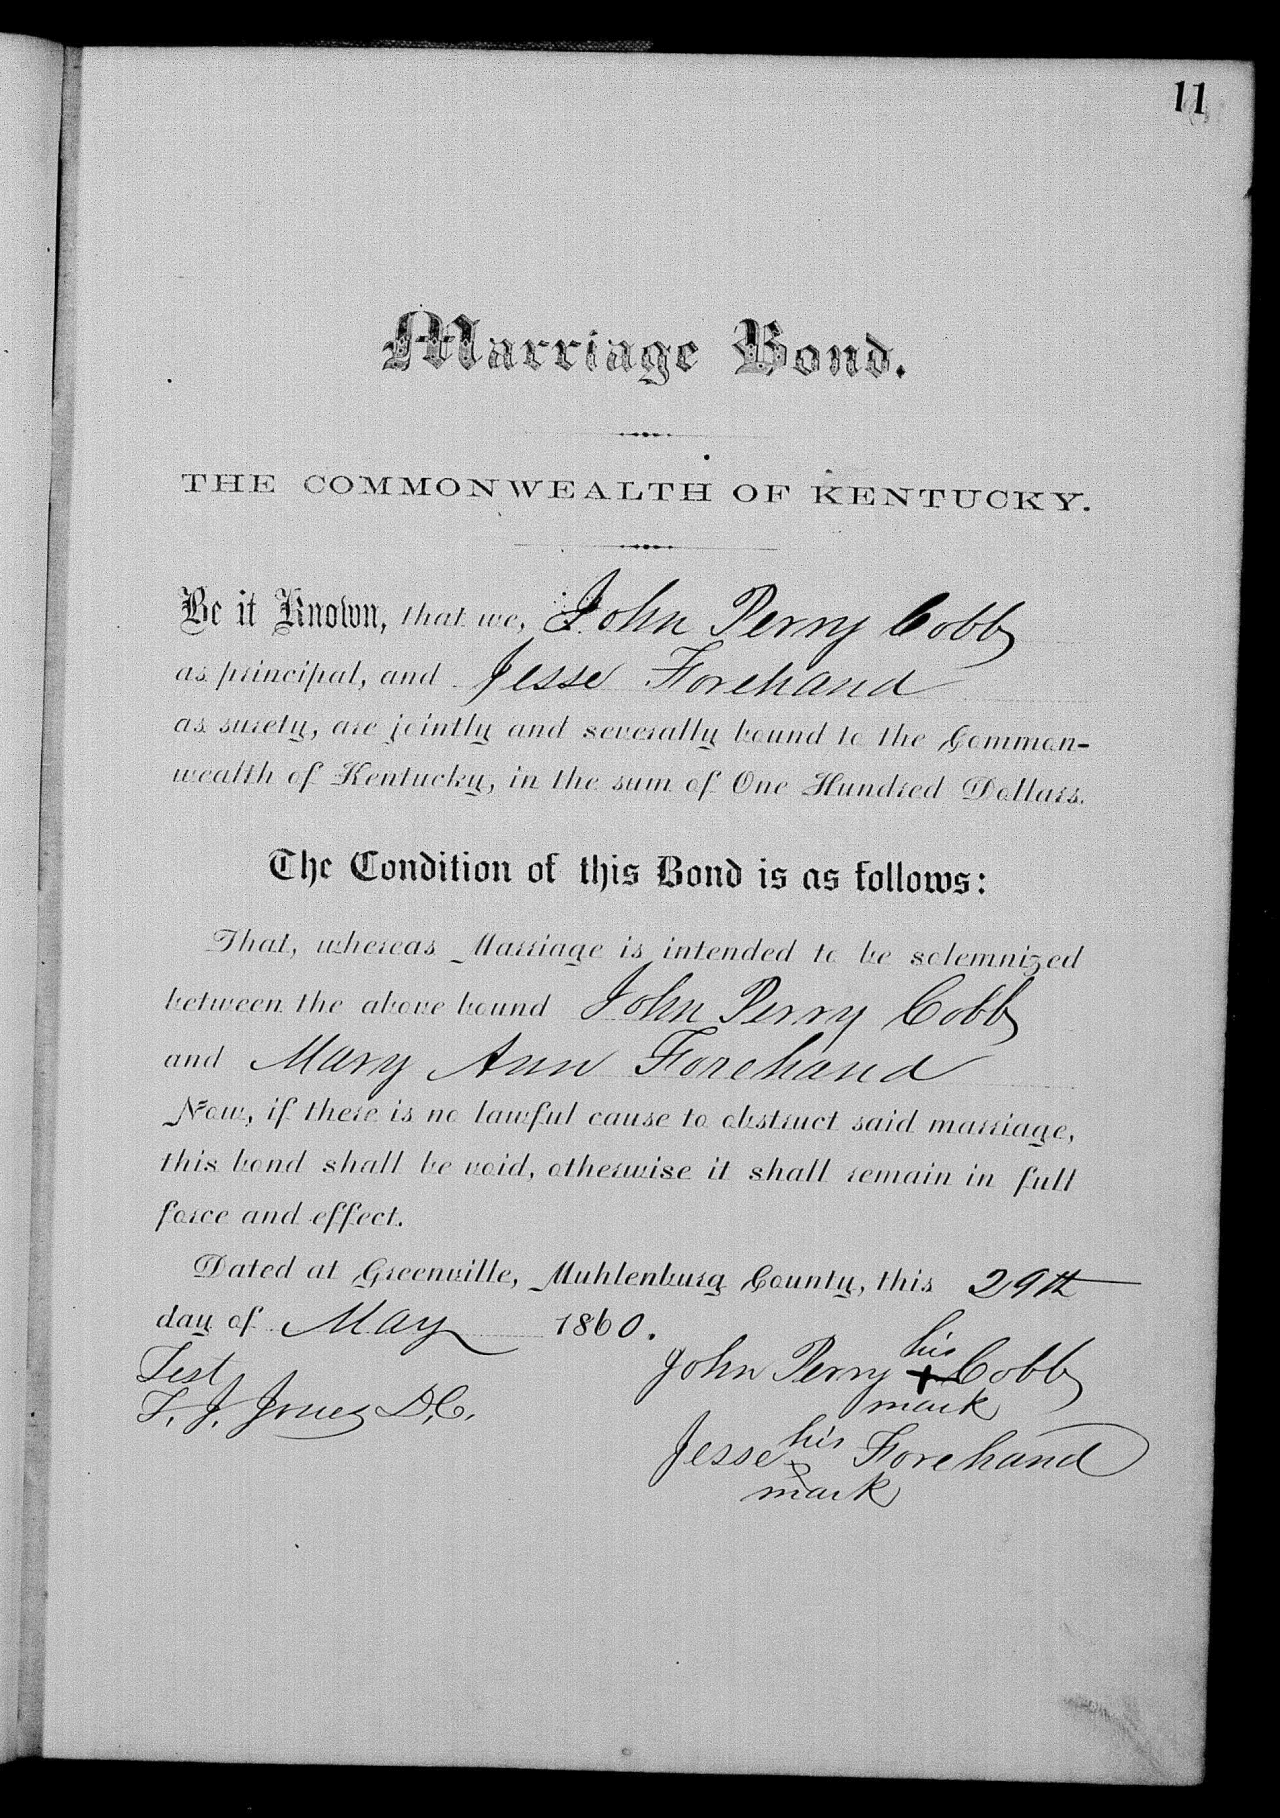 11
Marriage Bond.
THE COMMONWEALTH OF KENTUCKY.
Be it Known, that we, John Perry Cobb
as principal, and Jesse Forehand
as surety, are jointly and severally bound to the Common-
wealth of Kentucky, in the sum of One Hundred Dollars.
The Condition of this Bond is as follows:
That, whereas Marriage is intended to be solemnized
between the above bound John Perry Cobb
and Mary Ann Forehand
Now, if there is no lawful cause to obstruct said marriage,
this bond shall be void, otherwise it shall remain in full
force and effect.
Dated at Greenville, Muhlenburg County, this 29th
day of May 1860.
Test
T. J. Jones D.C.
his
John Perry + Cobb
mark
his
Jesse Forehand
mark